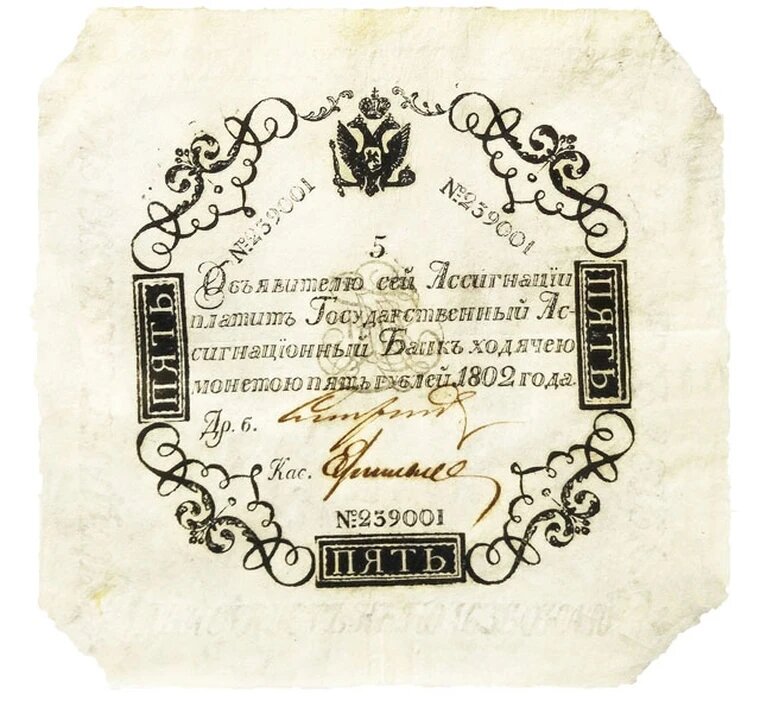 №239001
№239001
5
Объявителю сей Ассигнацiи
платитъ Государственный Ас-
сигнацiонный Банкъ ходячею
монетою пять рублей, 1802 года.
ПЯТЬ
ПЯТЬ
Др. б.
Кас.
№239001
ПЯТЬ